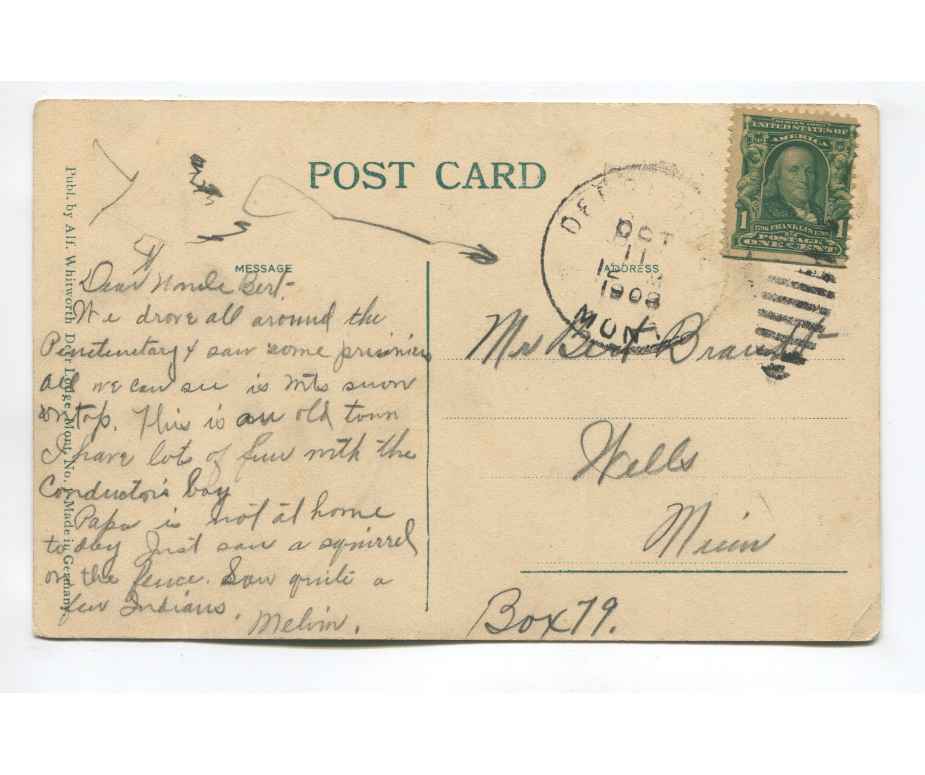 POST CARD
Publ. by Alf. Whitworth Deer Lodge, Mont. No. Made in Germany.
MESSAGE
Dear Uncle Bert-
We drove all around the
Penitinetary & saw some prisoniers
all we can see is mts snow
on top. This is an old town
I have lots of fun with the
Conductor's boy
Papa is not at home
to day Just saw a squirrel
on the fence. Saw quite a
few Indians.
Melvin.
UNITED STATES OF
AMERICA
1 1
FRANKLIN
POSTAGE
ONE CENT
DEER
OCT
11
12 M
1908
MONT.
ADDRESS
Mr Bert Brandt
Wells
Minn
Box 79.